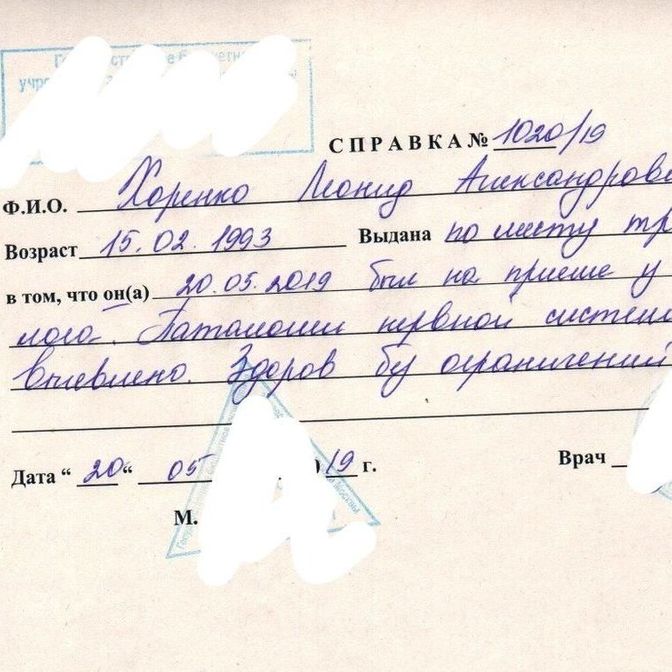 СПРАВКА № 1020/19
Ф.И.О. Хоренко Леонид Александрови
Возраст 15.02.1993 Выдана по месту тр
в том, что он(а) 20.05.2019 был на приеме у
лога. Патологии нервной систем
выявлено. Здоров без ограничений
Дата “ 20 “ 05 19 г. Врач
М.